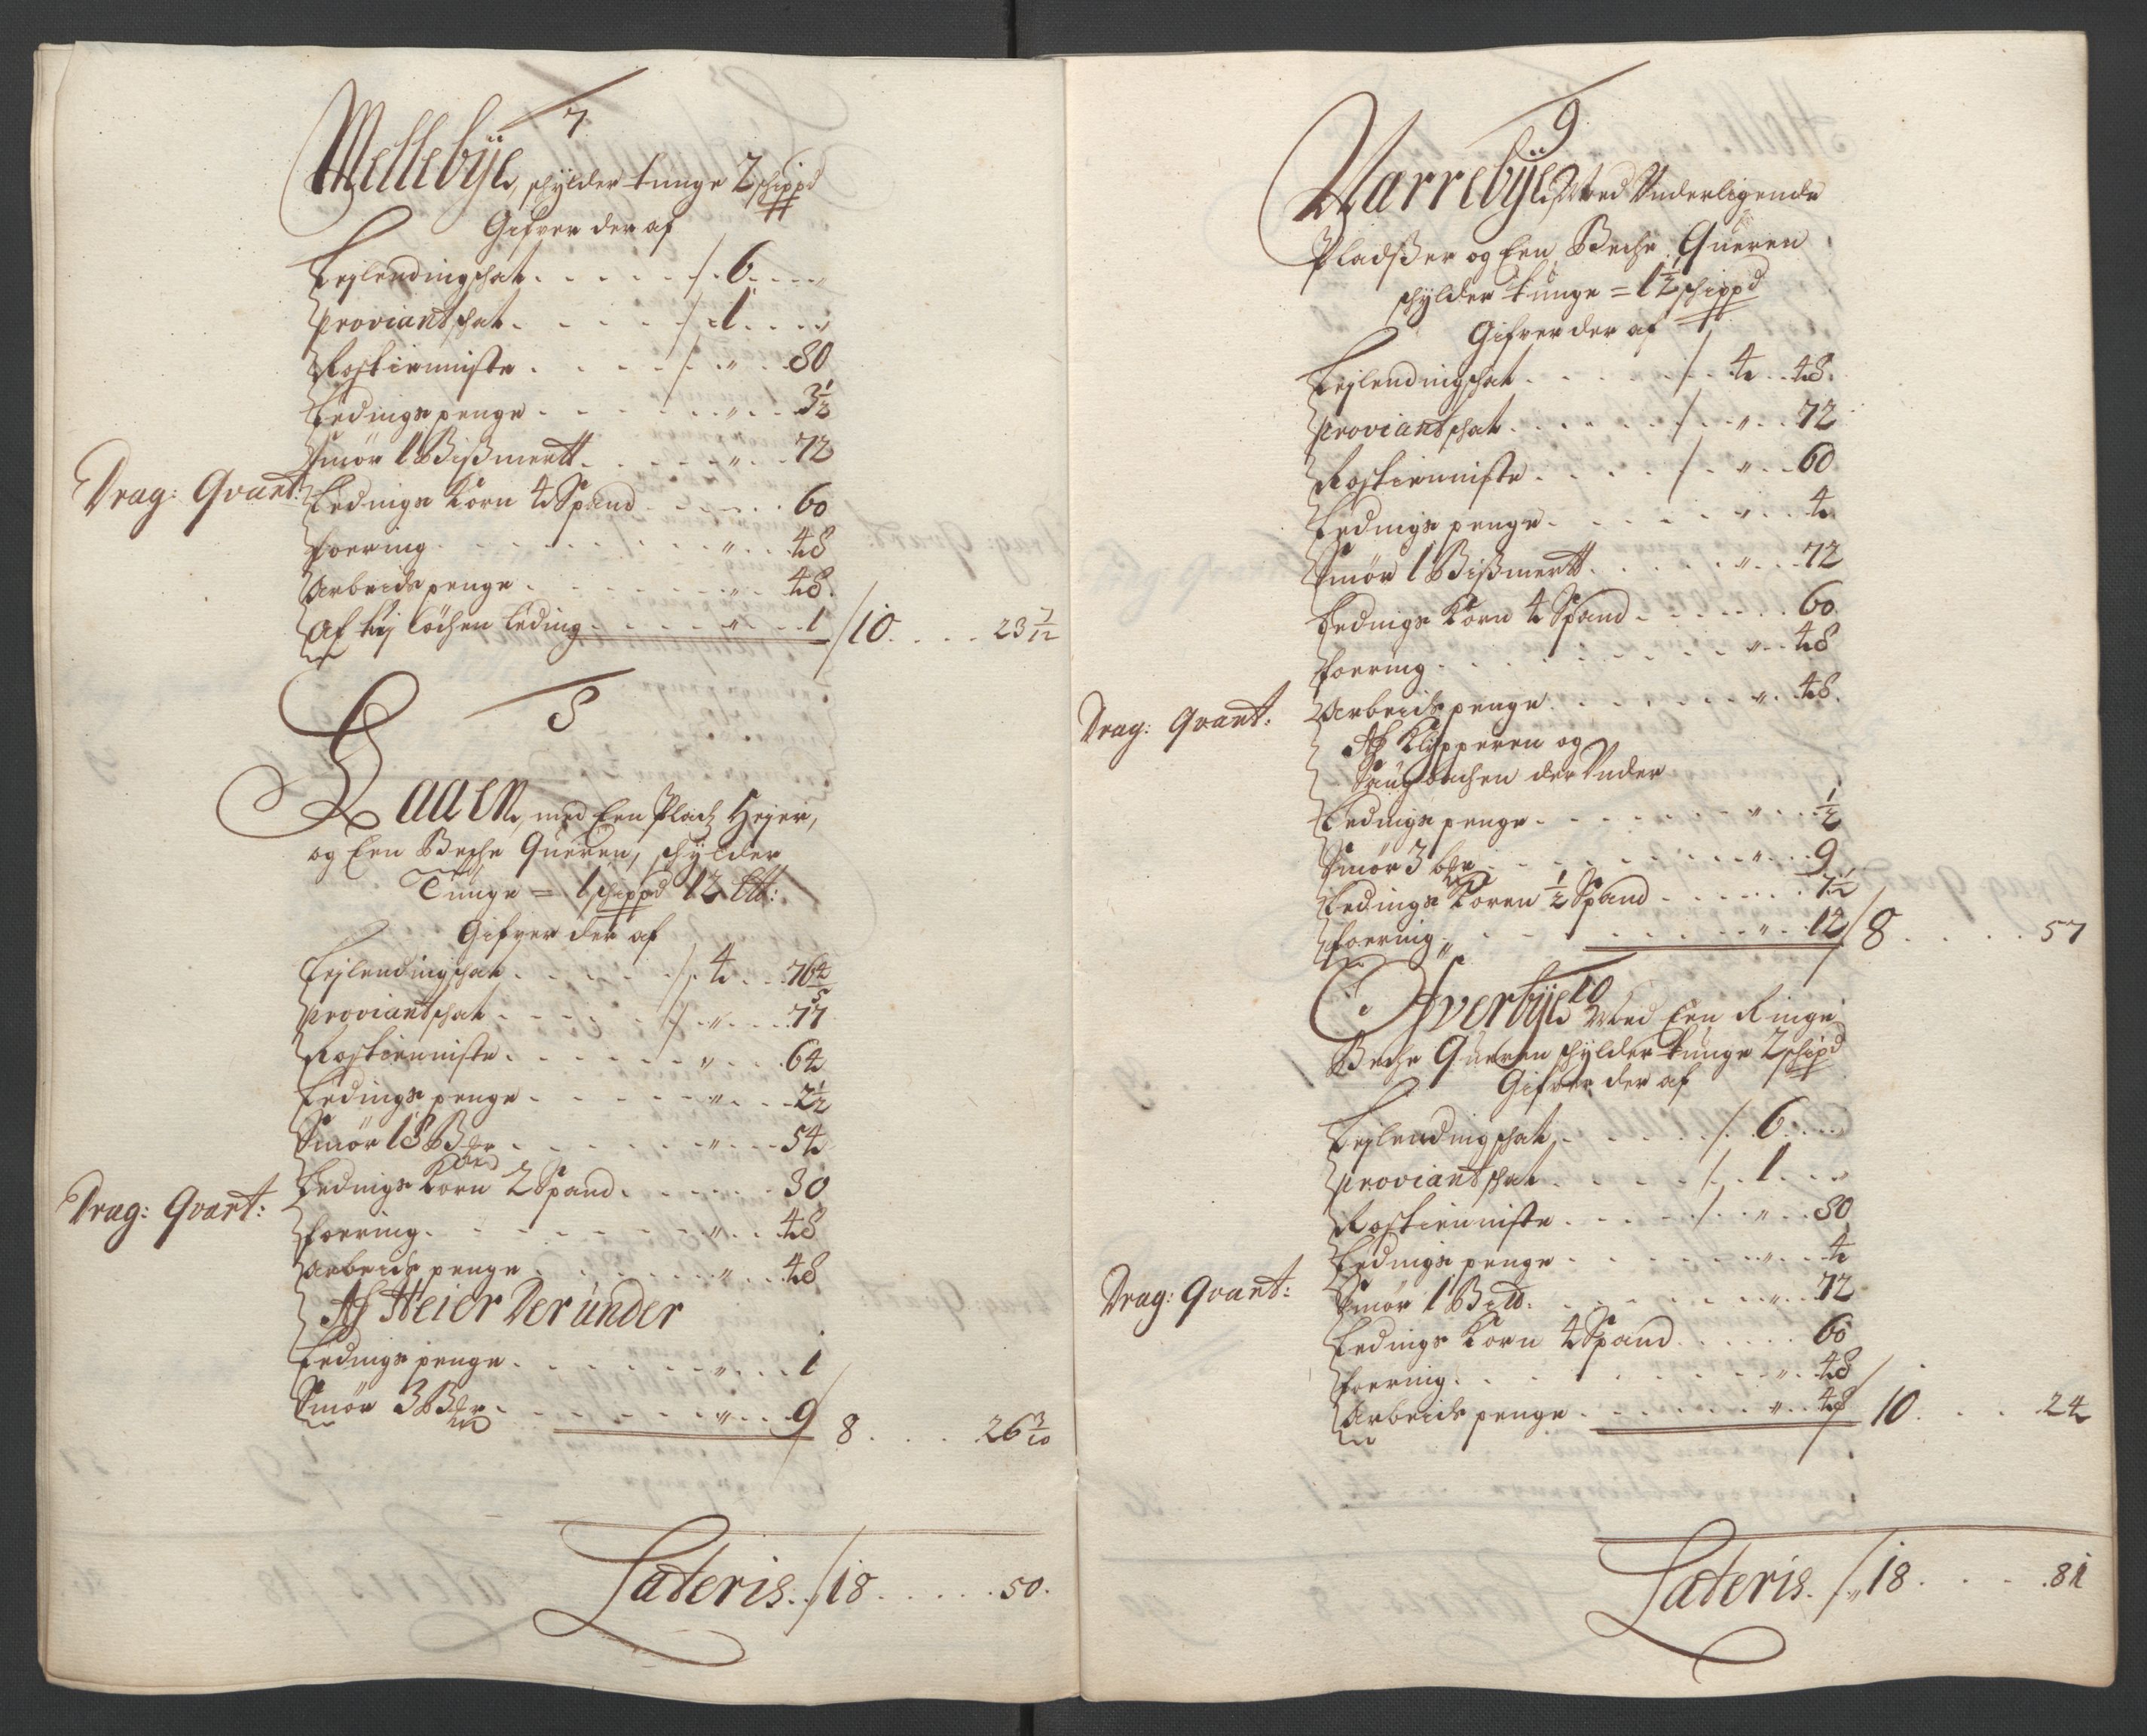 7
Mellebÿe, skÿlder tunge 2 schippd
Gifver der af
Lejlendingschat . . . . . 6 . . .
Proviantschat . . . . . 1 . . .
Rostienniste . . . . . " . . 80
Ledings penge . . . . . " . . 3½
Smör 1 Bißmertt . . . . . " . . 72
Drag: Qvart: Ledings Korn 4 Spand . . . . . 60
Foering . . . . . " . . 48
Arbeids penge . . . . . " . . 48
Af Leding . . . . . " . . 1 / 10 . . . . 23 7/12
8
Aaen, med Een Plads Heyer,
og Een Beche Queren, skÿlder
Tunge = 1 schippd 12 Ltt:
Gifver der af
Lejlendingschat . . . . . 4 . . 76 4/5
Proviantschat . . . . . " . . 77
Rostienniste . . . . . " . . 64
Ledings penge . . . . . " . . 2½
Smör 18 Bdr . . . . . " . . 54
Ledings Korn 2 Spand . . . . . 30
Drag: Qvart:
Foering . . . . . " . . 48
Arbeids penge . . . . . " . . 48
Af Heier Der under
Ledings penge . . . . . " . . 1
Smör 3 Bdr . . . . . " . . 9 / 8 . . . . 26 3/10
Lateris . . / 18 . . . . . 50.
9
Narrebÿe, Med Underligende
Pladßer og Een Beche Queren
skÿlder tunge = 1½ schippd
Gifver der af
Lejlendingschat . . . . . 4 . . 48.
Proviantschat . . . . . " . . 72
Rostienniste . . . . . " . . 60
Ledings penge . . . . . " . . 4
Smör 1 Bißmertt . . . . . " . . 72
Ledings Korn 4 Spand . . . . . 60
Foering . . . . . " . . 48
Drag: Qvart: Arbeids penge . . . . . " . . 48.
Af Klypperen og
der Under
Ledings penge . . . . . " . . ½
Smör 3 bdr . . . . . " . . 9
Ledings Koren ½ Spand . . . . . 7½
Foering . . . . . " . . 12 / 8 . . . . 57
10
Ofverbÿe, Med Een Ringe
Beche Queren skÿlder tunge 2 schipd
Gifver der af
Lejlendingschat . . . . . 6 . . .
Proviantschat . . . . . 1 . . .
Rostienniste . . . . . " . . 80
Ledings penge . . . . . " . . 4
Drag: Qvart: Smör 1 Bd . . . . . " . . 72
Ledings Korn 4 Spand . . . . . 60
Foering . . . . . " . . 48
Arbeids penge . . . . . " . . 48 / 10 . . . . 24
Lateris . . / 18 . . . . . 81